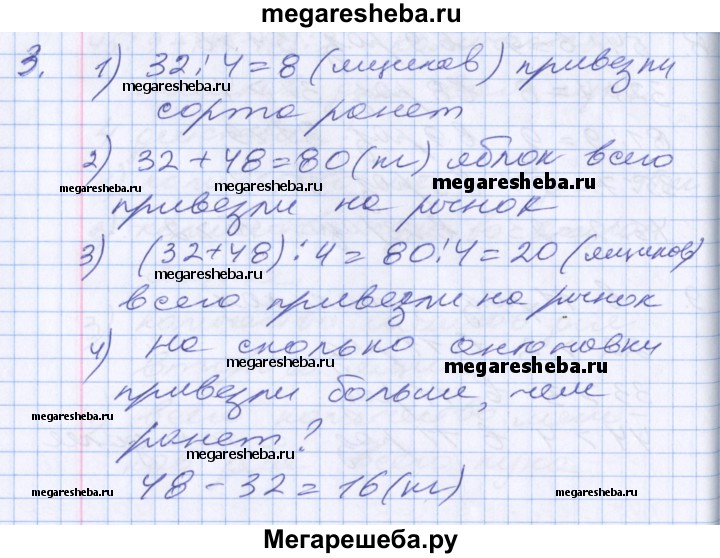 megaresheba.ru
3. 1) 32:4=8 (ящиков) привезли
megaresheba.ru
сорта ранет
2) 32+48=80(кг) яблок всего
megaresheba.ru
megaresheba.ru
привезли на рынок
3) (32+48):4=80:4=20 (ящиков)
megaresheba.ru
всего привезли на рынок
4) на сколько антоновки
megaresheba.ru
megaresheba.ru
привезли больше, чем
megaresheba.ru
ранет?
megaresheba.ru
48-32=16(кг)
megaresheba.ru
megaresheba.ru
Мегарешеба.ру